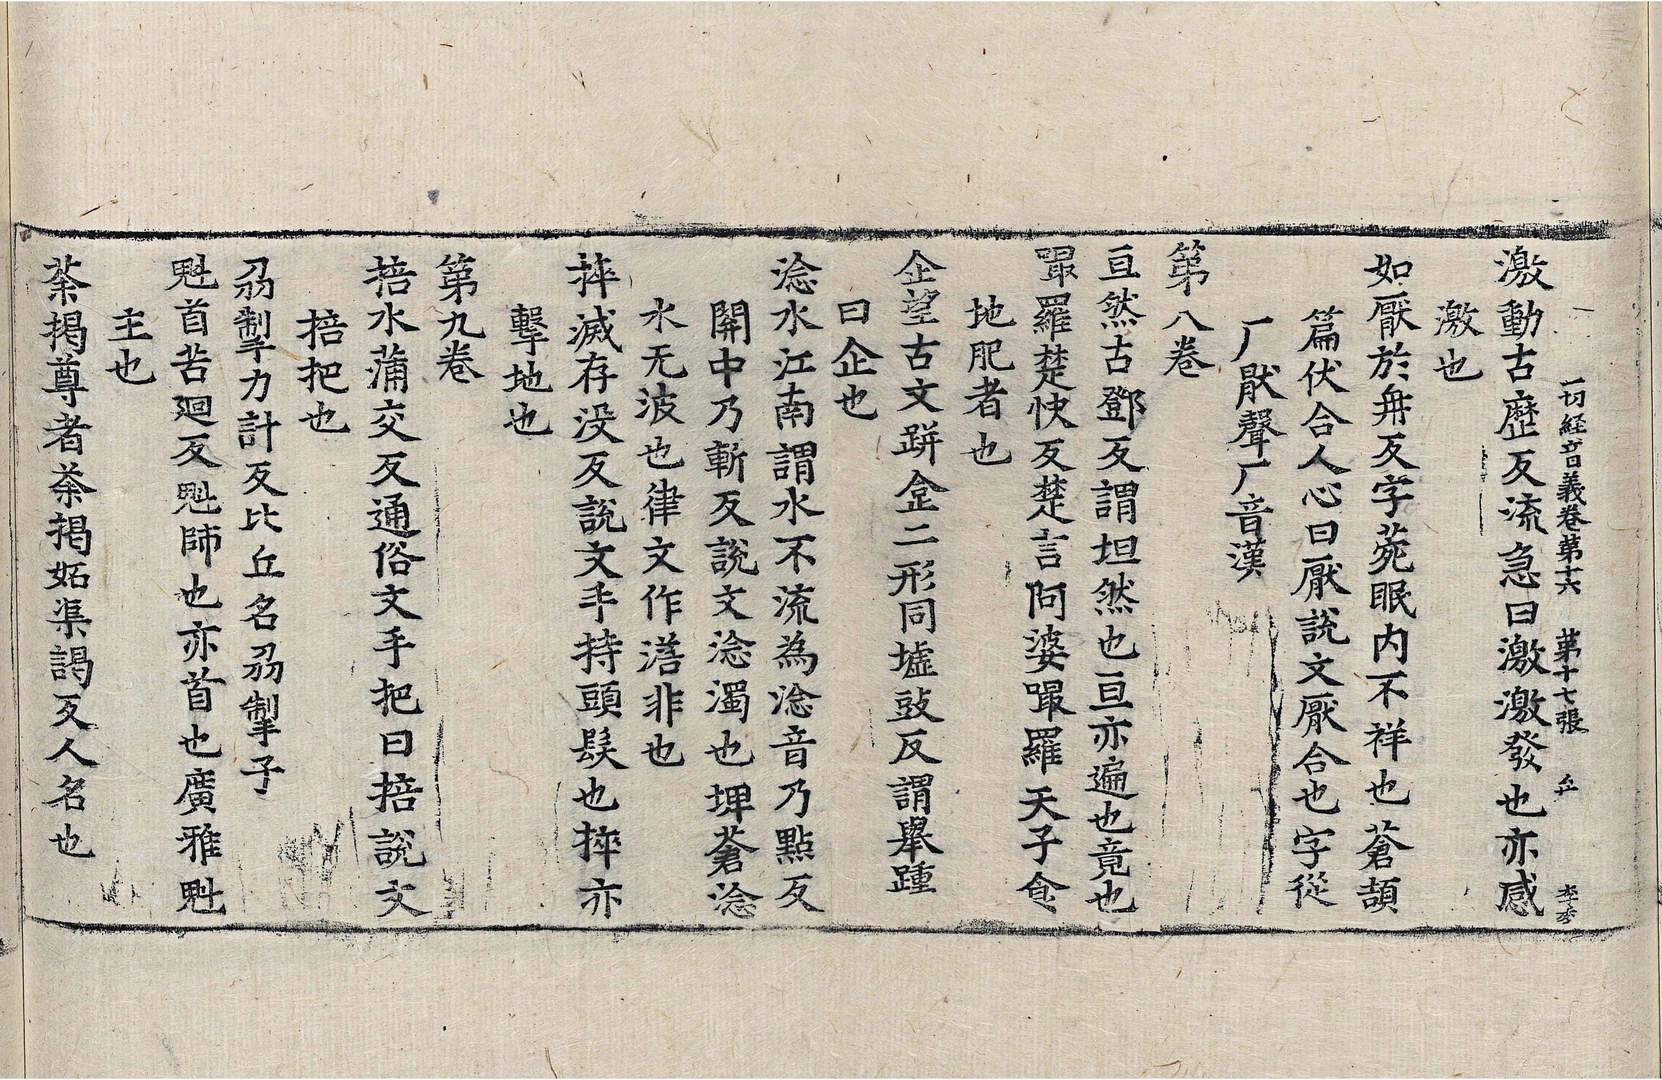 一切經音義卷第十六　第十七張
激動古歷反流急曰激激發也亦感
激也
如厭於冉反字苑眠内不祥也蒼頡
篇伏合人心曰厭說文厭合也字從
厂猒聲厂音漢
第八卷
亘然古鄧反謂坦然也亘亦遍也竟也
㘊羅楚快反楚言阿婆㘊羅天子食
地肥者也
企望古文跰㐀二形同墟豉反謂舉踵
曰企也
淰水江南謂水不流為淰音乃點反
關中乃斬反說文淰濁也埤蒼淰
水无波也律文作濸非也
捽滅存没反說文手持頭髮也捽亦
擊地也
第九卷
掊水蒲交反通俗文手把曰掊說文
掊把也
刕掣力計反比丘名刕掣子
魁首苦迴反魁師也亦首也廣雅魁
主也
荼掲尊者荼掲妬渠謁反人名也